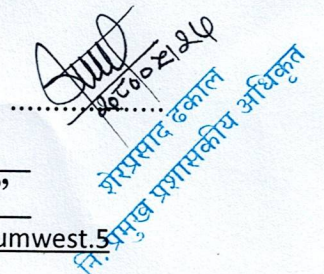 २०८०।५।२५
शेरप्रसाद ढकाल
नि. प्रमुख प्रशासकीय अधिकृत
”
umwest.5